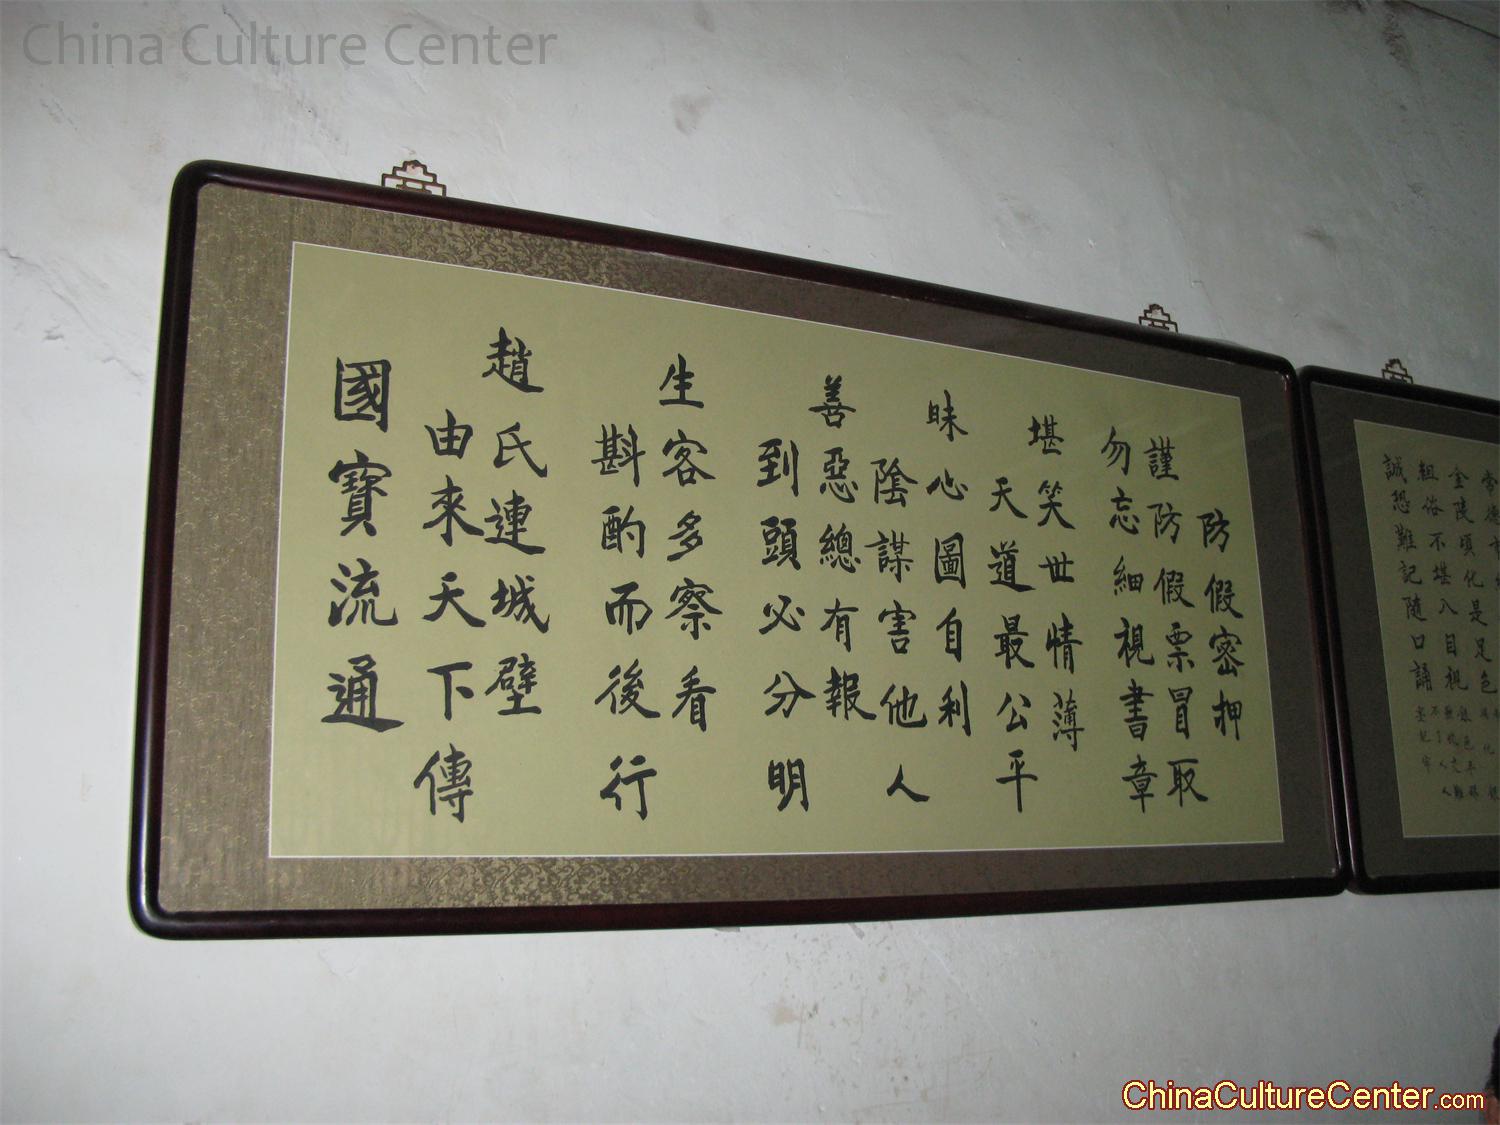 China Culture Center
防假密押
謹防假票冒取
勿忘細視書章
堪笑世情薄
天道最公平
昧心圖自利
陰謀害他人
善惡總有報
到頭必分明
生客多察看
斟酌而後行
趙氏連城壁
由來天下傳
國寶流通
金陵頃化是足色
粗俗不堪入目視
誠恐難記隨口誦
ChinaCultureCenter.com